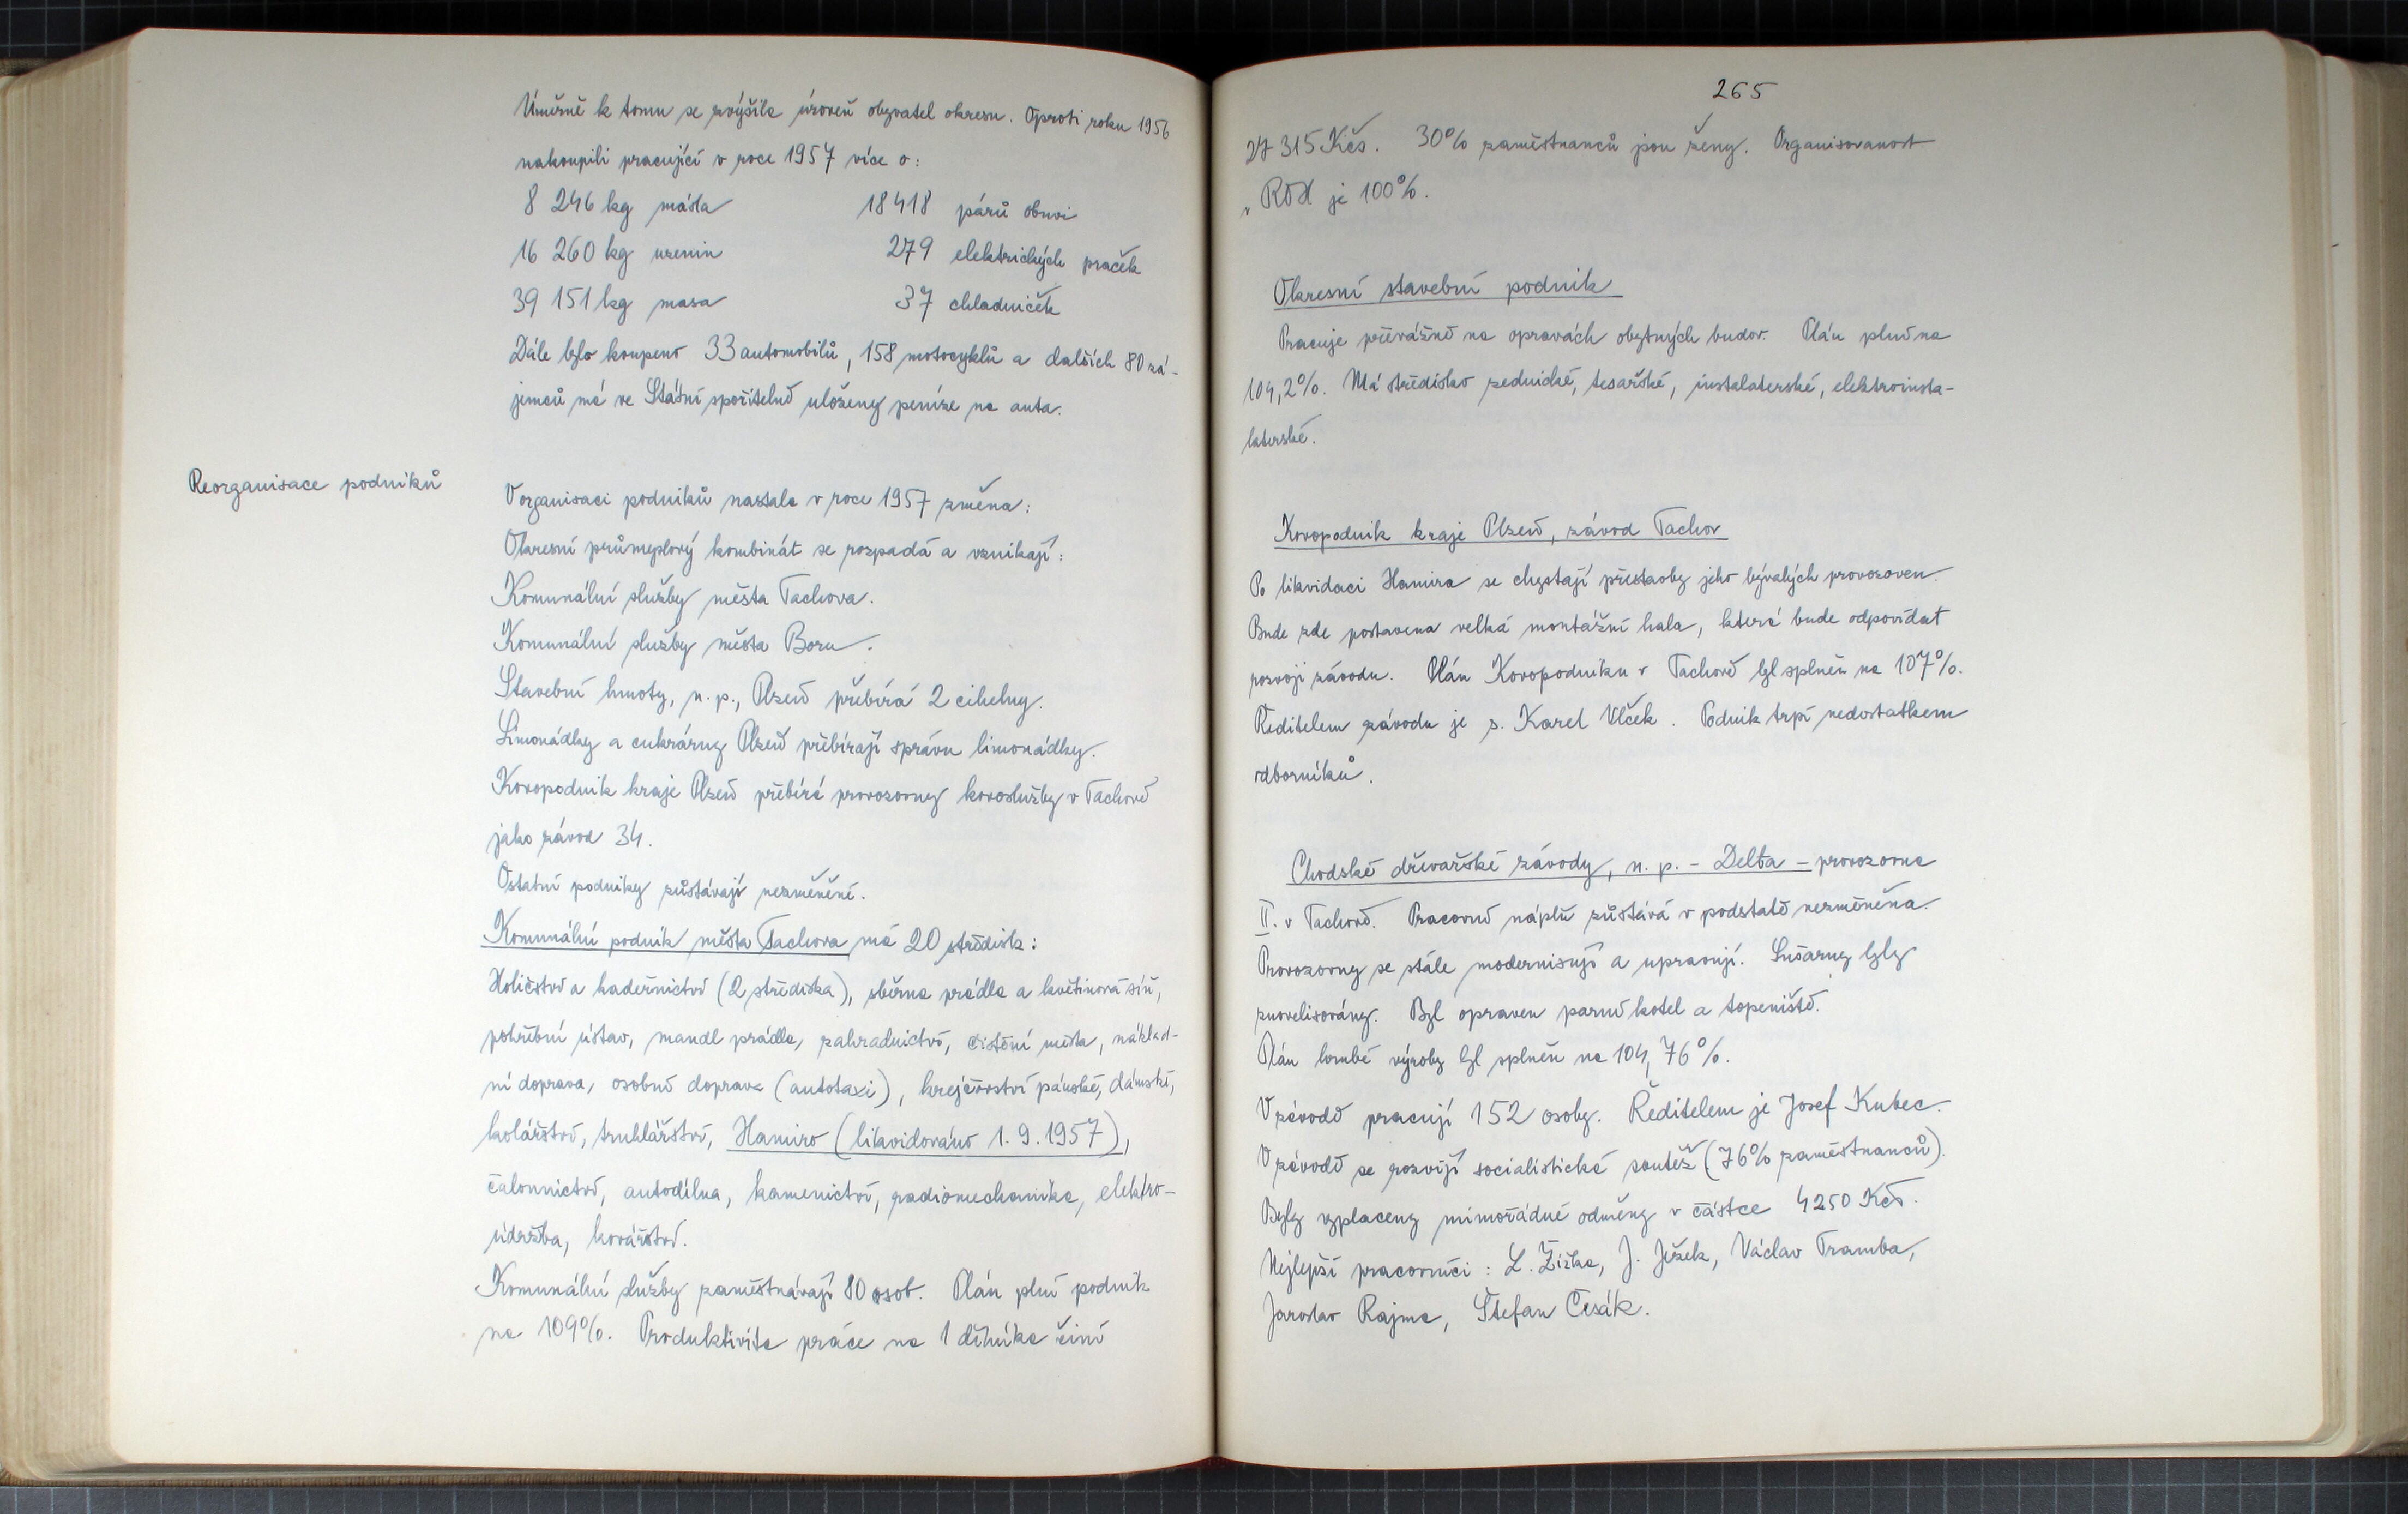 Úměrně k tomu se zvýšila úroveň obyvatel okresu. Oproti roku 1956
nakoupili pracující v roce 1957 více o:
8 246 kg másla 18418 párů obuvi
16 260 kg uzenin 279 elektrických praček
39 151 kg masa 37 chladniček
Dále bylo koupeno 33 automobilů, 158 motocyklů a dalších 80 zá-
jemců má ve Státní spořitelně uloženy peníze na auta.
Reorganisace podniků
V organisaci podniků nastala v roce 1957 změna:
Okresní průmyslový kombinát se rozpadá a vznikají:
Komunální služby města Tachova.
Komunální služby města Boru.
Stavební hmoty, n. p., Plzeň přebírá 2 cihelny.
Limonádky a cukrárny Plzeň přebírají správu limonádky.
Kovopodnik kraje Plzeň přebírá provozovny kovoslužby v Tachově
jako závod 34.
Ostatní podniky zůstávají nezměněné.
Komunální podnik města Tachova má 20 středisk:
Holičství a kadeřnictví (2 střediska), sběrna prádla a květinová síň,
pohřební ústav, mandl prádla, zahradnictví, čistění města, náklad-
ní doprava, osobní doprava (autotaxi), krejčovství pánské, dámské,
kolářství, truhlářství, Hamiro (likvidováno 1. 9. 1957),
čalounictví, autodílna, kamenictví, radiomechanika, elektro-
údržba, kovářství.
Komunální služby zaměstnávají 80 osob. Plán plní podnik
na 109%. Produktivita práce na 1 dělníka činí
265
27 315 Kčs. 30% zaměstnanců jsou ženy. Organisovanost
v ROH je 100%.
Okresní stavební podnik
Pracuje převážně na opravách obytných budov. Plán plní na
104,2%. Má středisko zednické, tesařské, instalaterské, elektroinsta-
laterské.
Kovopodnik kraje Plzeň, závod Tachov
Po likvidaci Hamira se chystají přístavby jeho bývalých provozoven.
Bude zde postavena velká montážní hala, která bude odpovídat
rozvoji závodu. Plán Kovopodniku v Tachově byl splněn na 107%.
Ředitelem závodu je s. Karel Vlček. Podnik trpí nedostatkem
odborníků.
Chodské dřevařské závody, n. p. - Delta - provozovna
II. v Tachově. Pracovní náplň zůstává v podstatě nezměněna.
Provozovny se stále modernisují a upravují. Sušárny byly
znovelisovány. Byl opraven parní kotel a topeniště.
Plán hrubé výroby byl splněn na 104,76%.
V závodě pracují 152 osoby. Ředitelem je Josef Kubec.
V závodě se rozvíjí socialistická soutěž (76% zaměstnanců).
Byly vyplaceny mimořádné odměny v částce 4250 Kčs.
Nejlepší pracovníci: L. Žižka, J. Ježek, Václav Tramba,
Jaroslav Rajma, Štefan Česák.